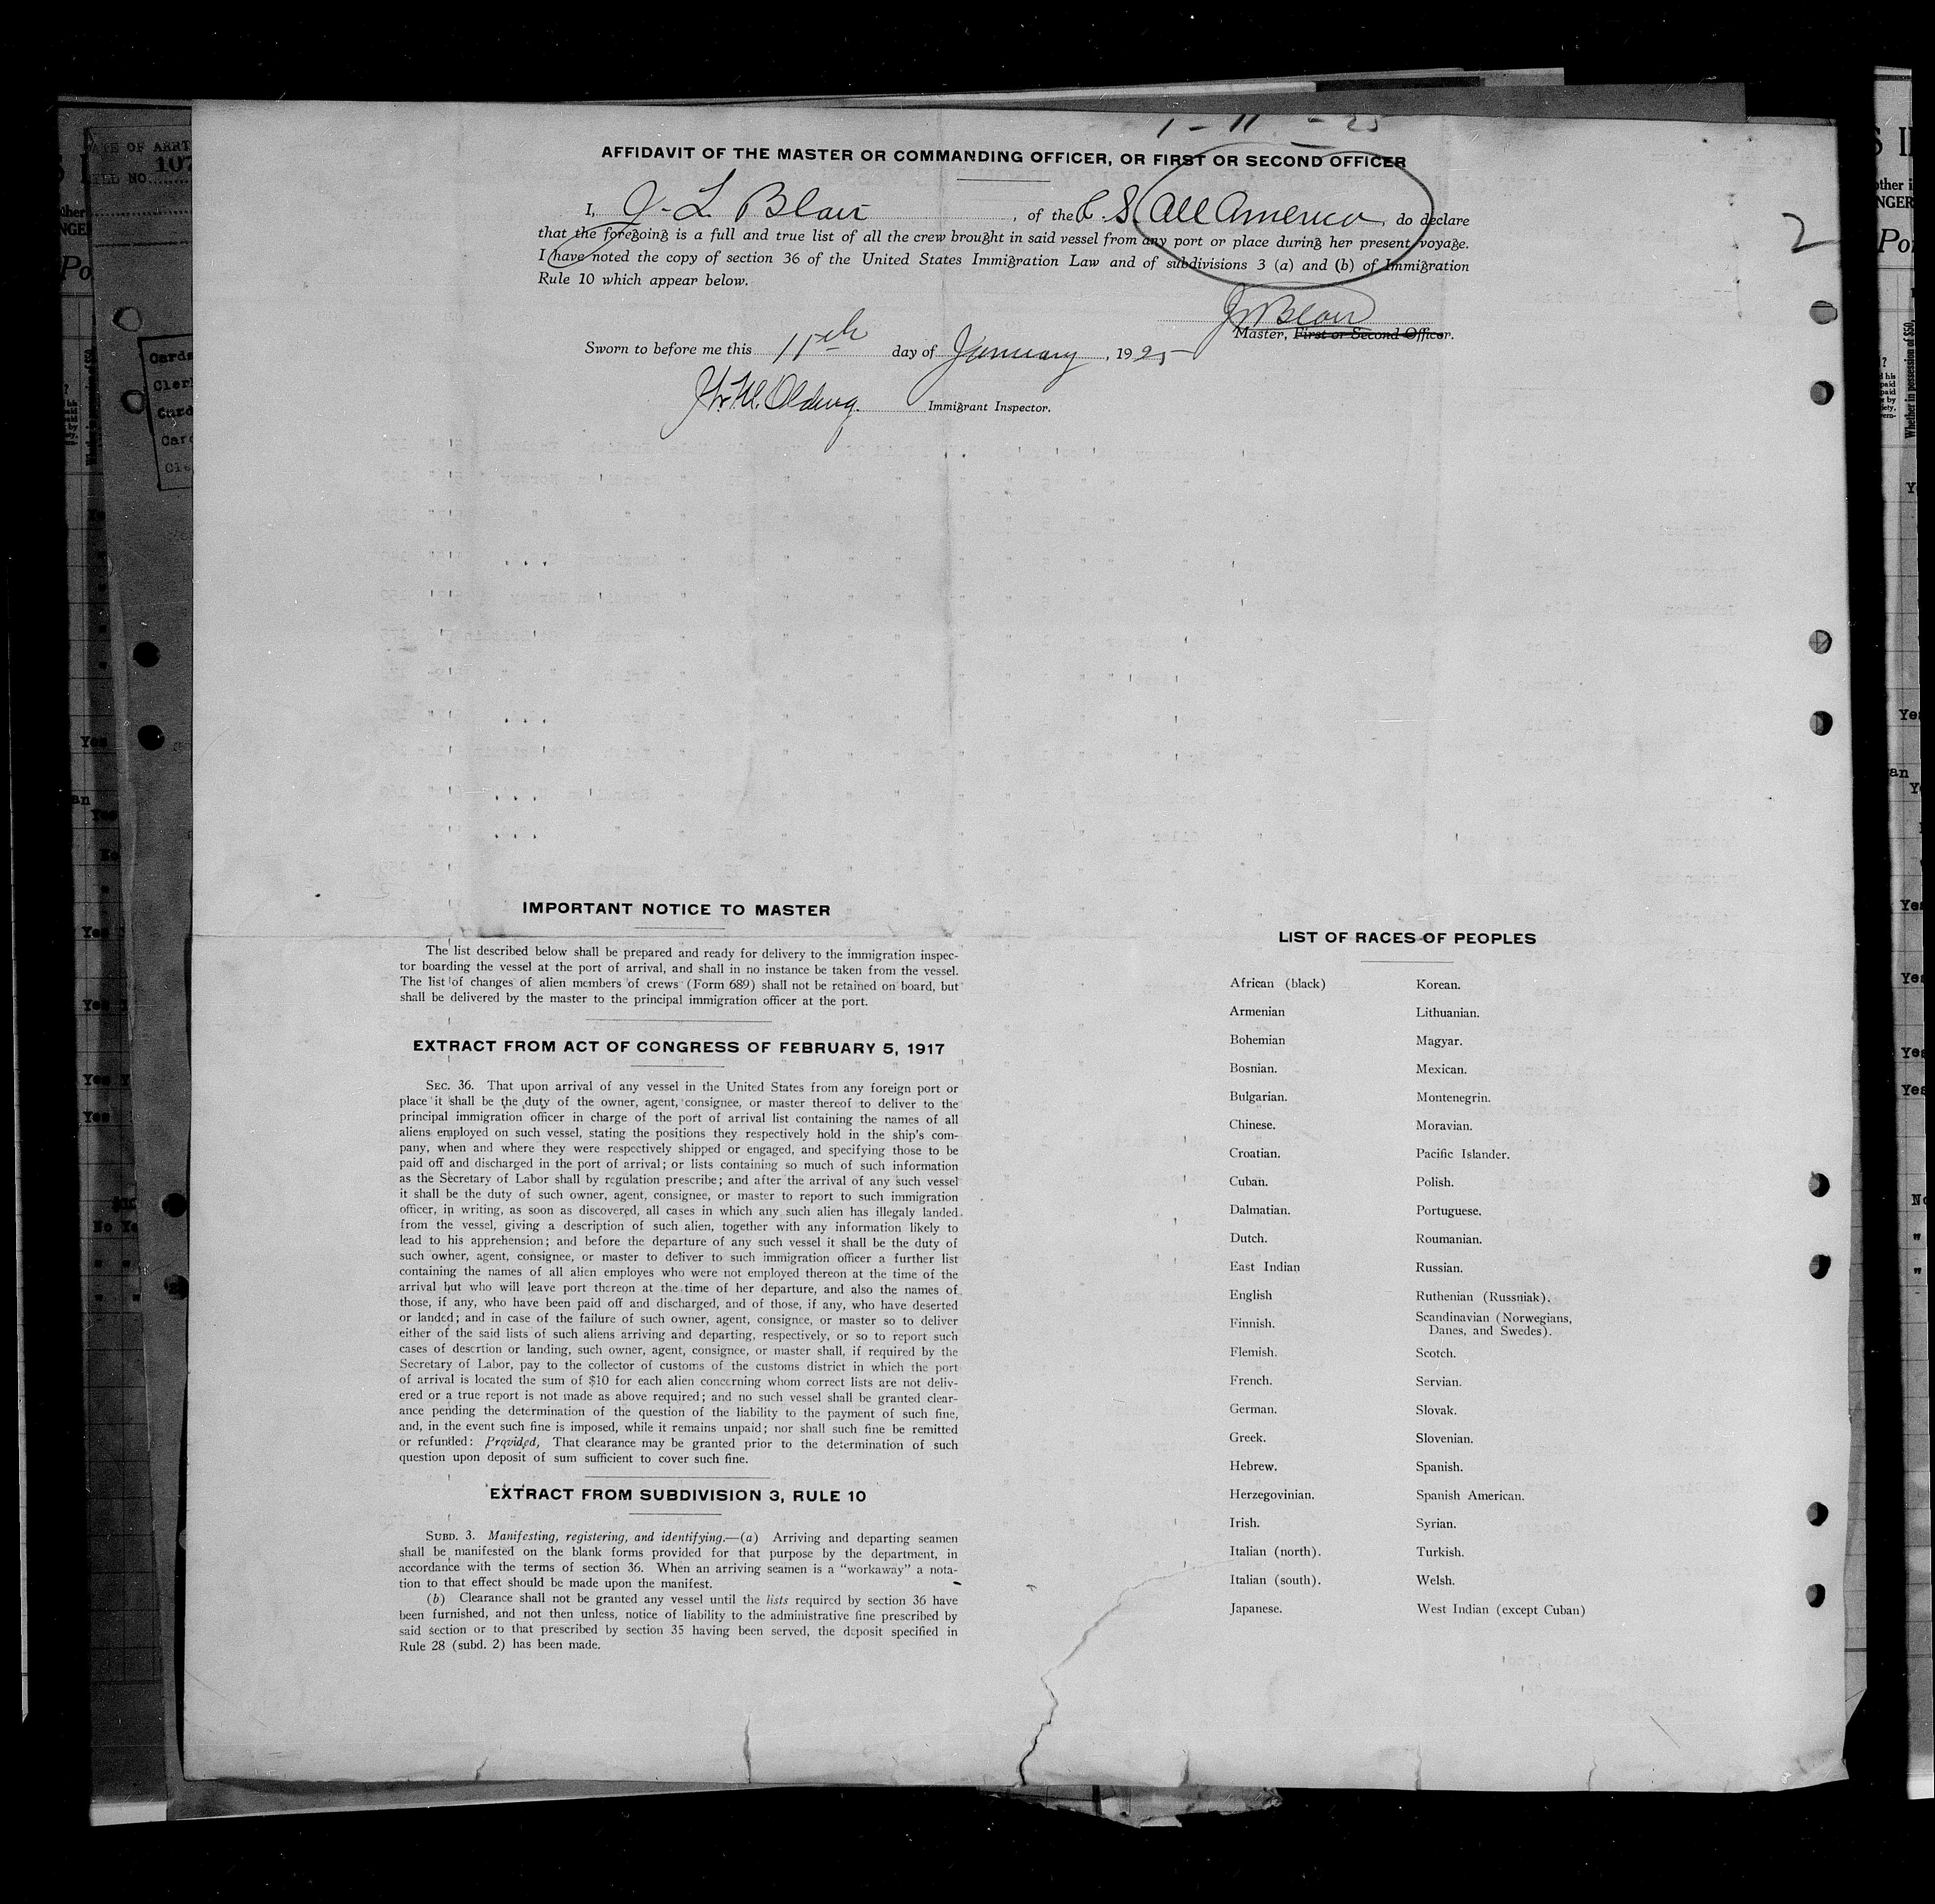 1 - 11 - 25
AFFIDAVIT OF THE MASTER OR COMMANDING OFFICER, OR FIRST OR SECOND OFFICER
I, J. L. Blair, of the C. S. All America, do declare
that the foregoing is a full and true list of all the crew brought in said vessel from any port or place during her present voyage.
I have noted the copy of section 36 of the United States Immigration Law and of subdivisions 3 (a) and (b) of Immigration
Rule 10 which appear below.
2
Blair
Master, First or Second Officer.
Sworn to before me this 11th day of January, 1925
Immigrant Inspector.
IMPORTANT NOTICE TO MASTER
The list described below shall be prepared and ready for delivery to the immigration inspec-
tor boarding the vessel at the port of arrival, and shall in no instance be taken from the vessel.
The list of changes of alien members of crews (Form 689) shall not be retained on board, but
shall be delivered by the master to the principal immigration officer at the port.
EXTRACT FROM ACT OF CONGRESS OF FEBRUARY 5, 1917
SEC. 36. That upon arrival of any vessel in the United States from any foreign port or
place it shall be the duty of the owner, agent, consignee, or master thereof to deliver to the
principal immigration officer in charge of the port of arrival list containing the names of all
aliens employed on such vessel, stating the positions they respectively hold in the ship's com-
pany, when and where they were respectively shipped or engaged, and specifying those to be
paid off and discharged in the port of arrival; or lists containing so much of such information
as the Secretary of Labor shall by regulation prescribe; and after the arrival of any such vessel
it shall be the duty of such owner, agent, consignee, or master to report to such immigration
officer, in writing, as soon as discovered, all cases in which any such alien has illegally landed
from the vessel, giving a description of such alien, together with any information likely to
lead to his apprehension; and before the departure of any such vessel it shall be the duty of
such owner, agent, consignee, or master to deliver to such immigration officer a further list
containing the names of all alien employes who were not employed thereon at the time of the
arrival but who will leave port thereon at the time of her departure, and also the names of
those, if any, who have been paid off and discharged, and of those, if any, who have deserted
or landed; and in case of the failure of such owner, agent, consignee, or master so to deliver
either of the said lists of such aliens arriving and departing, respectively, or so to report such
cases of desertion or landing, such owner, agent, consignee, or master shall, if required by the
Secretary of Labor, pay to the collector of customs of the customs district in which the port
of arrival is located the sum of $10 for each alien concerning whom correct lists are not deliv-
ered or a true report is not made as above required; and no such vessel shall be granted clear-
ance pending the determination of the question of the liability to the payment of such fine,
and, in the event such fine is imposed, while it remains unpaid; nor shall such fine be remitted
or refunded: Provided, That clearance may be granted prior to the determination of such
question upon deposit of sum sufficient to cover such fine.
EXTRACT FROM SUBDIVISION 3, RULE 10
SUBD. 3. Manifesting, registering, and identifying.—(a) Arriving and departing seamen
shall be manifested on the blank forms provided for that purpose by the department, in
accordance with the terms of section 36. When an arriving seamen is a “workaway” a nota-
tion to that effect should be made upon the manifest.
(b) Clearance shall not be granted any vessel until the lists required by section 36 have
been furnished, and not then unless, notice of liability to the administrative fine prescribed by
said section or to that prescribed by section 35 having been served, the deposit specified in
Rule 28 (subd. 2) has been made.
LIST OF RACES OF PEOPLES
African (black) Korean.
Armenian Lithuanian.
Bohemian Magyar.
Bosnian. Mexican.
Bulgarian. Montenegrin.
Chinese. Moravian.
Croatian. Pacific Islander.
Cuban. Polish.
Dalmatian. Portuguese.
Dutch. Roumanian.
East Indian Russian.
English Ruthenian (Russniak).
Finnish. Scandinavian (Norwegians,
Danes, and Swedes).
Flemish. Scotch.
French. Servian.
German. Slovak.
Greek. Slovenian.
Hebrew. Spanish.
Herzegovinian. Spanish American.
Irish. Syrian.
Italian (north). Turkish.
Italian (south). Welsh.
Japanese. West Indian (except Cuban)